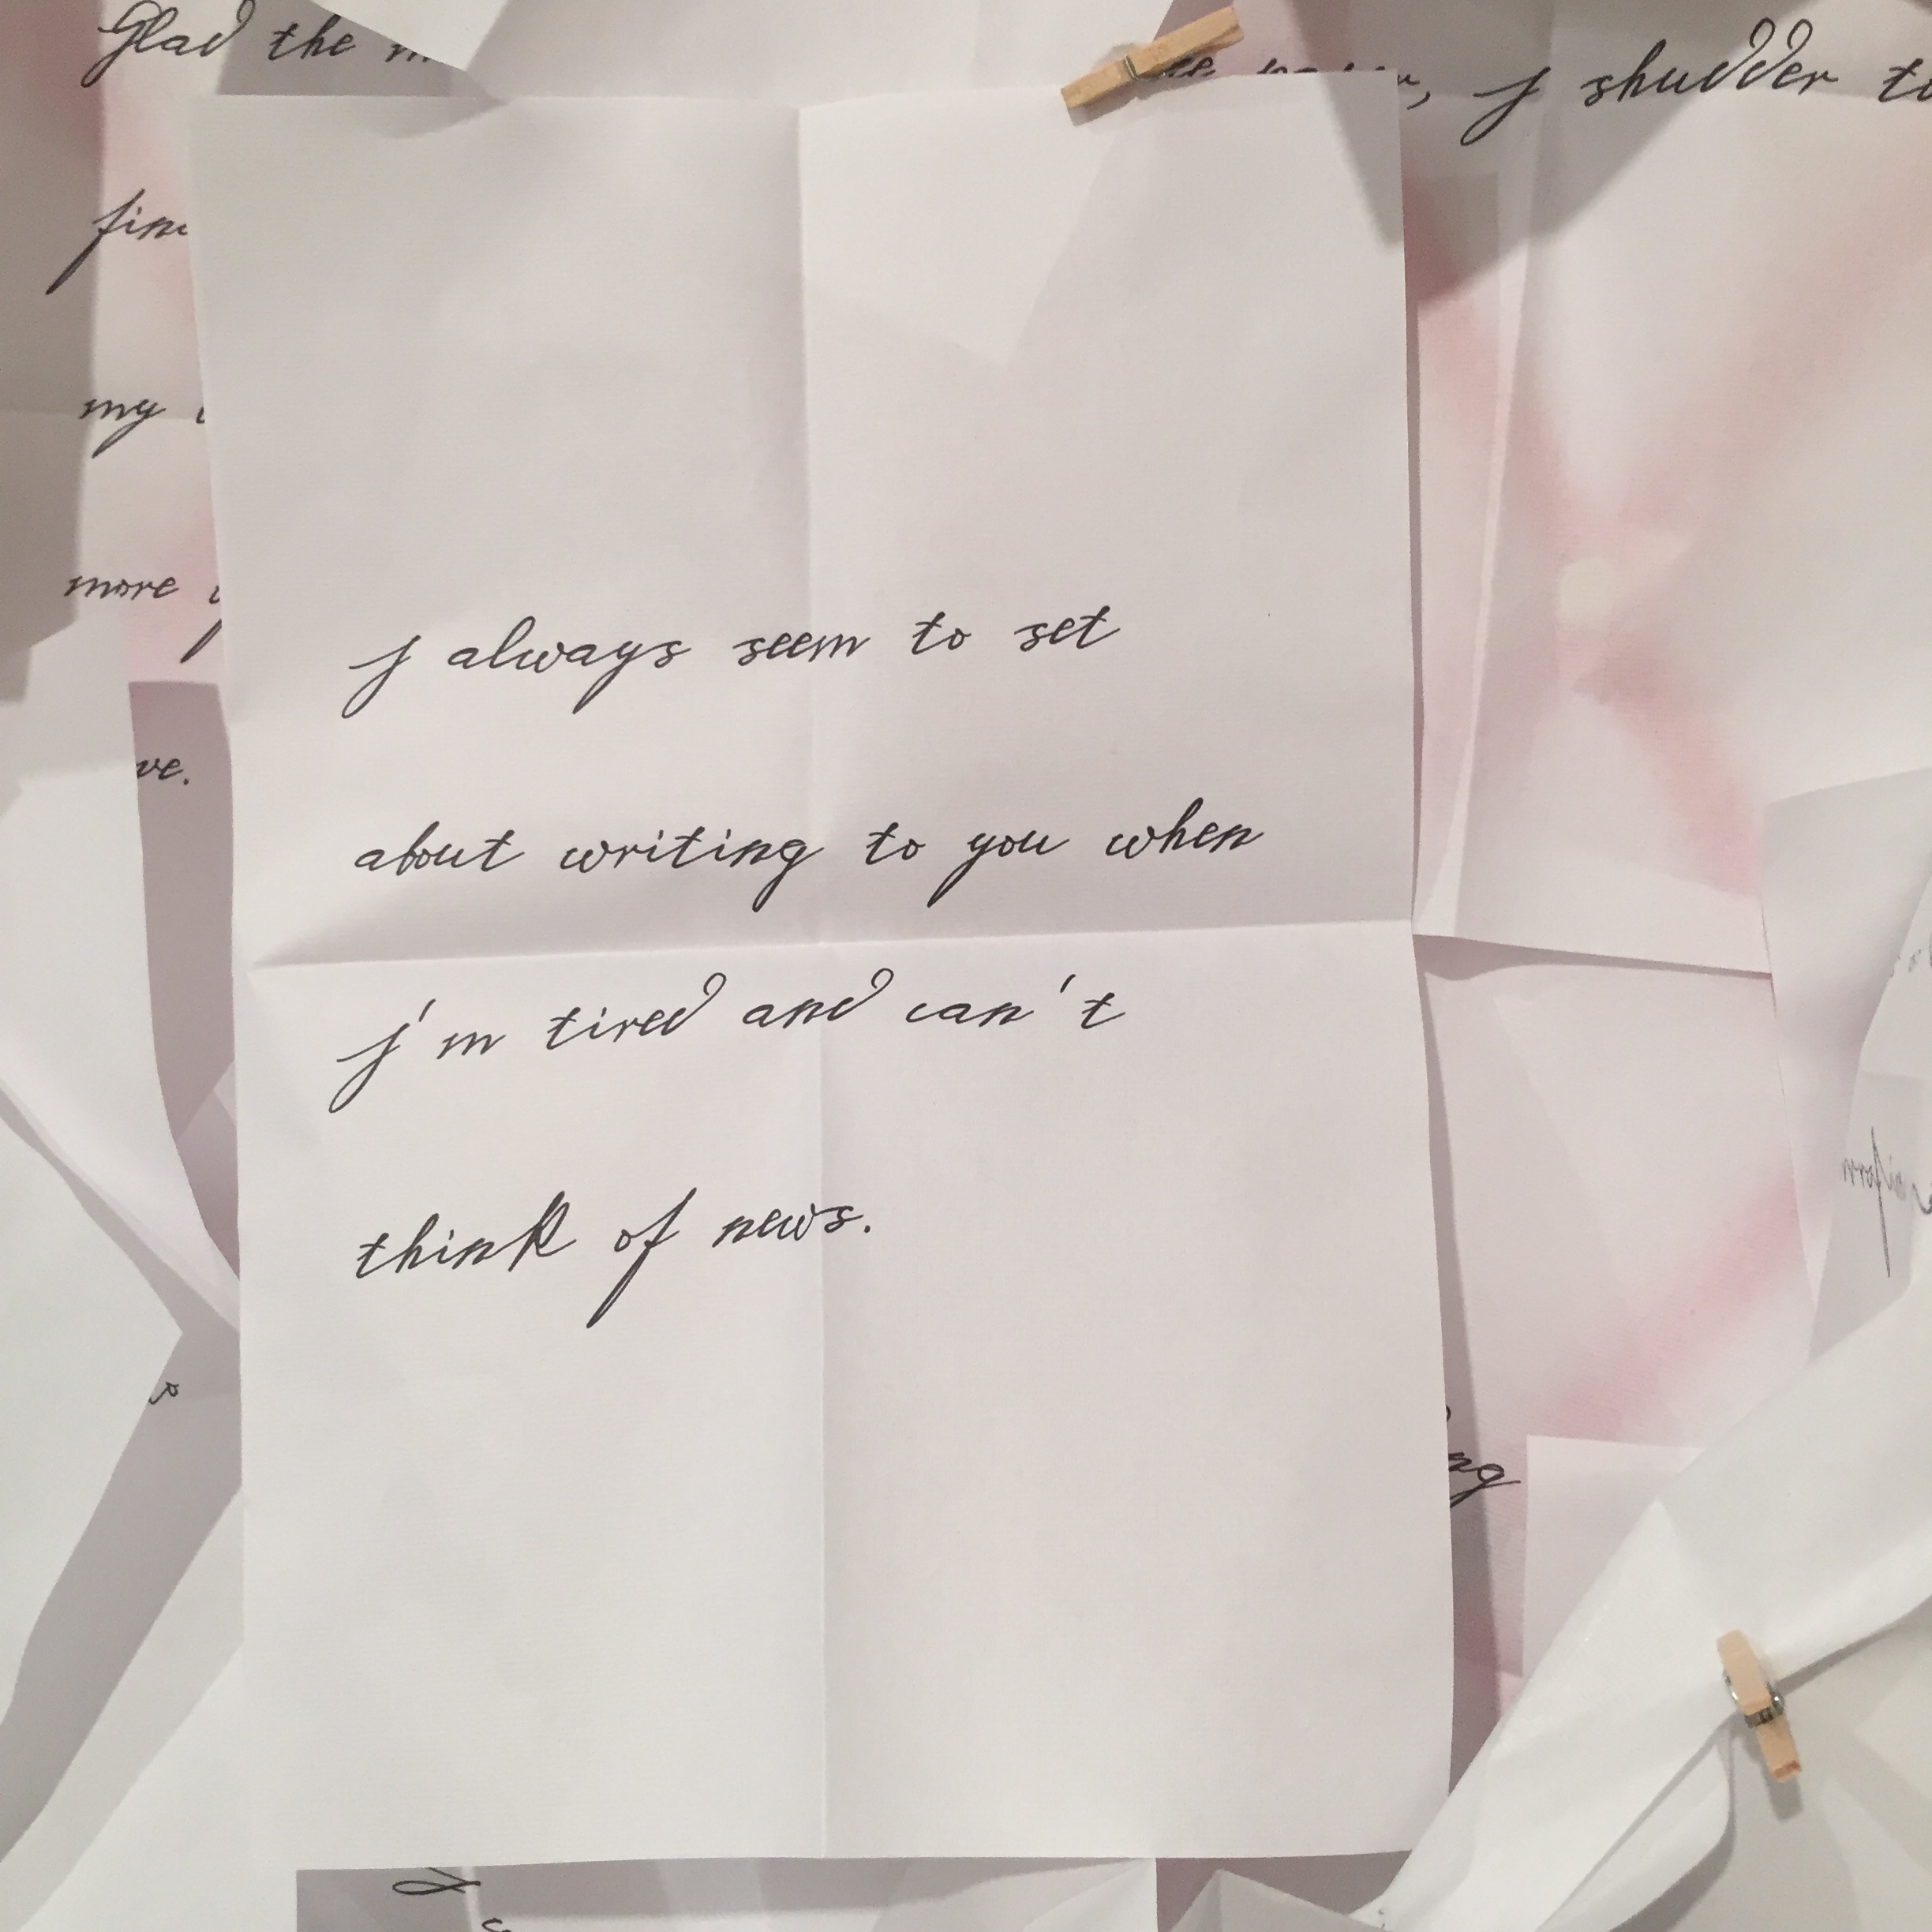 Glad the
I shudder to
my
more
I always seem to set
about writing to you when
I'm tired and can't
think of news.